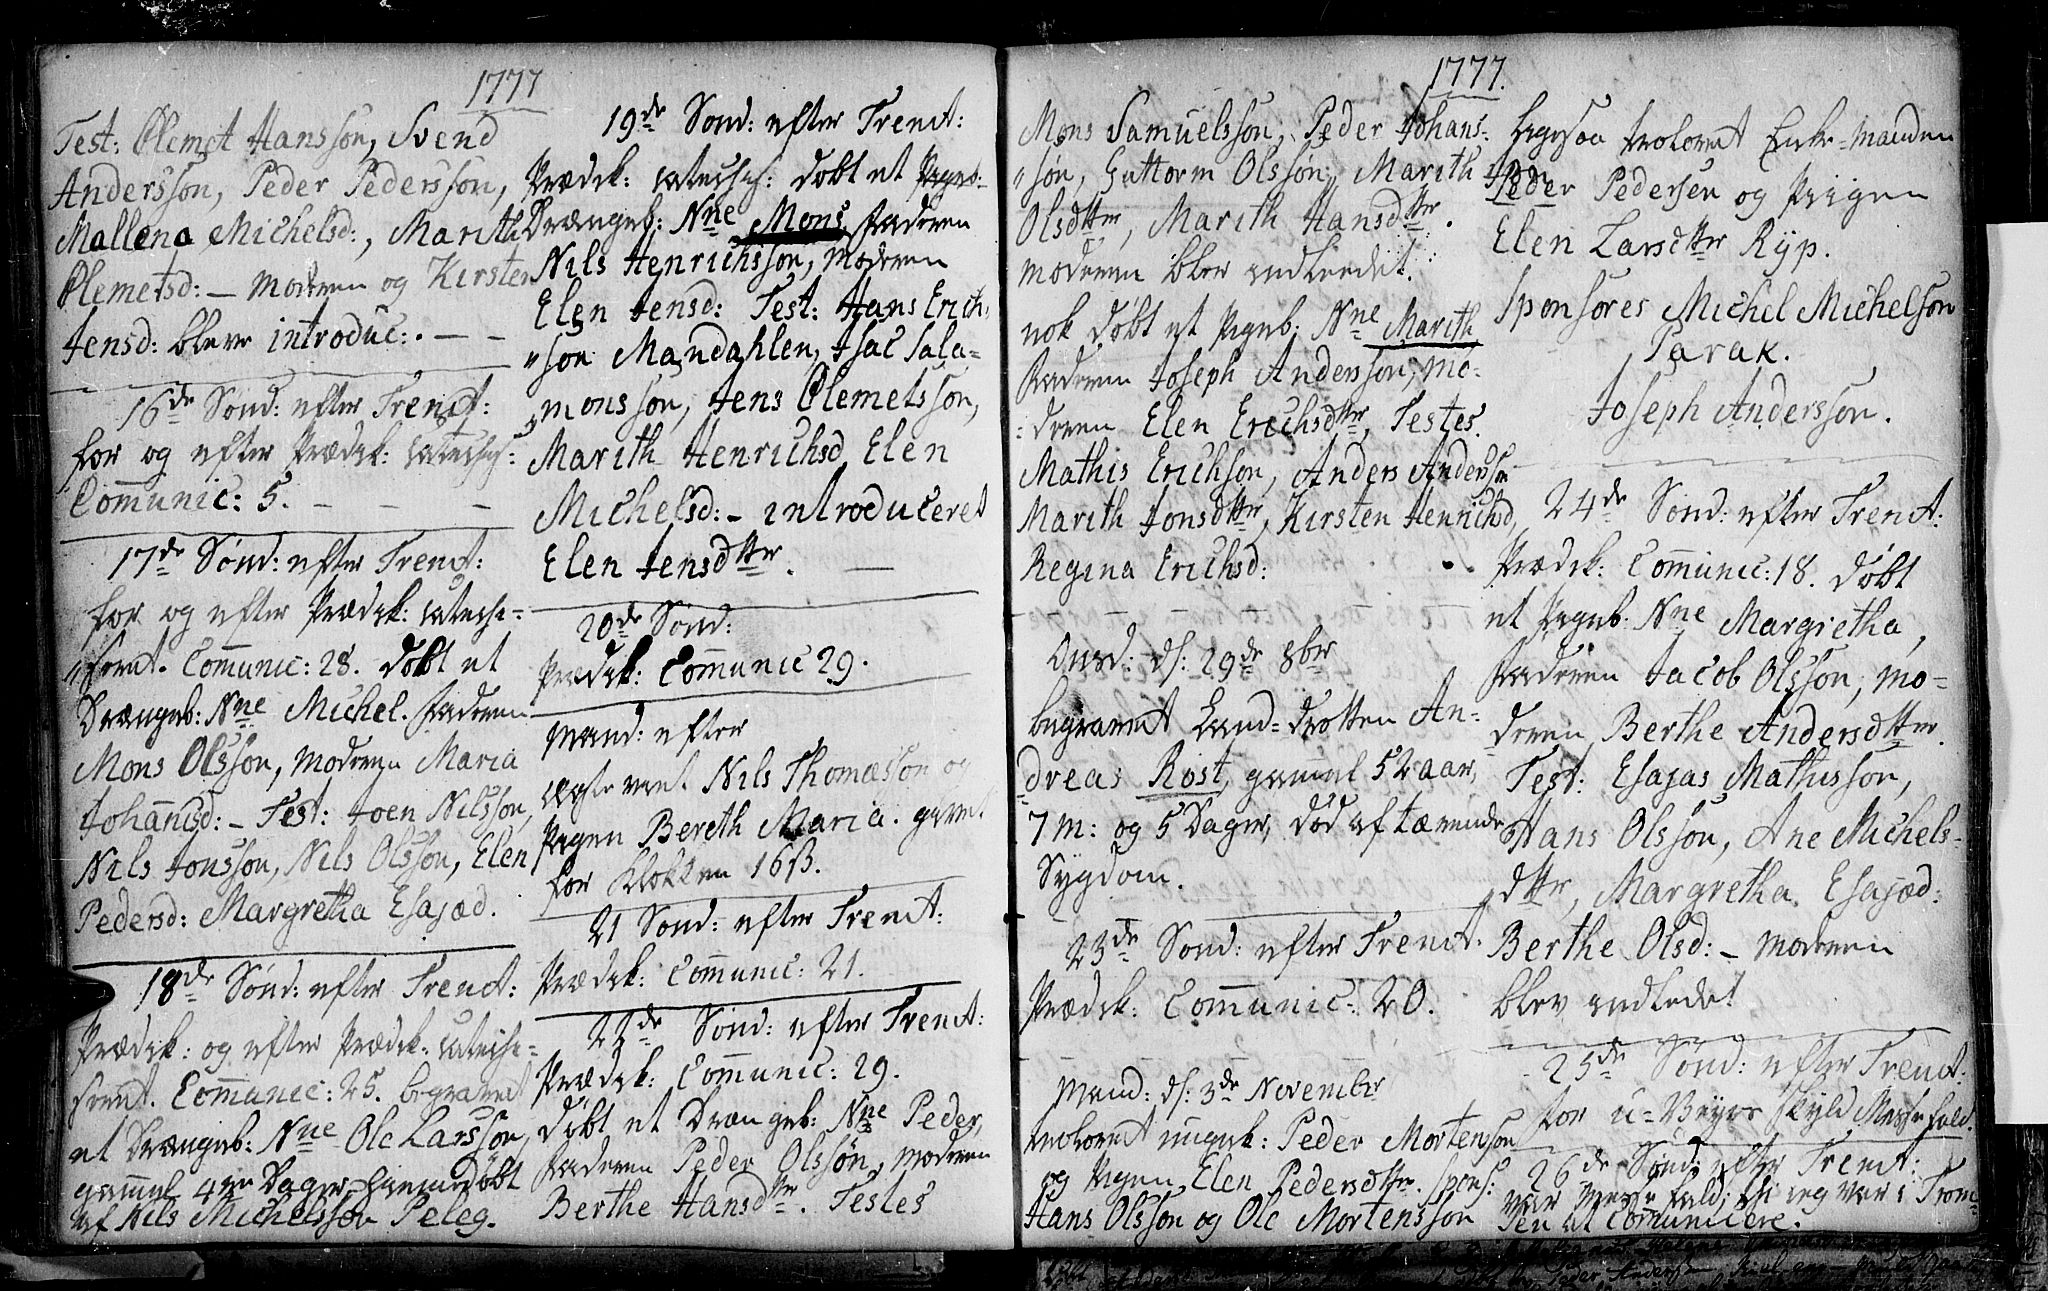 1777
Test: Olemet Hansson, Svend
Andersson, Peder Pedersson,
Mallena Michelsd:, Marith
Olemetsd: – moderen og Kirsten
Jensd: bleve introduc: . – –
16de Sønd: efter Trinit:
for og efter Prædik: catechis:
Communic: 5. – – –
17de Sønd: efter Trinit:
for og efter Prædik: catechi-
"seret. Communic: 28. døbt et
Drængeb: Nne Michel. Faderen
Mons Olsson, moderen Maria
Johannsd: – Test: Joen Nilsson,
Nils Jonsson, Nils Olsson, Elen
Pedersd: Margretha Esajæd.
18de Sønd: efter Trinit:
Prædik: og efter Prædik: catechi-
seret. Communic: 25. begravet
et Drængeb: Nne Ole Larsson,
gammel 4re Dager, hiemmedøbt
af Nils Michelsson Peleg.
19de Sønd: efter Trinit:
Prædik: catechis: døbt et
Drængeb: Nne Mons Faderen
Nils Henrichsson, moderen
Elen Jensd: Test: Hans Erich-
"son Mandahlen, Isac Sala-
"monsson, Jens Olemetsson,
Marith Henrichsd Elen
Michelsd: – introduceret
Elen Jensdtter. –
20de Sønd:
Prædik: Communic 29.
Mand: efter
ægteviet Nils Thomæsson og
Pigen Bereth Maria. gavet
for Klokken 16 ß.
21 Sønd: efter Trinit:
Prædik: Communic: 21.
22de Sønd: efter Trinit:
Prædik: Communic: 29.
døbt et Drængeb: Nne Peder,
Faderen Peder Olssøn, moderen
Berthe Hansdtr. Testes
1777.
Mons Samuelssøn, Peder Johans-
"søn, Guttorm Olssøn, Marith
Olsdtter, Marith Hansdtter.
moderen blev indleedet.
nok døbt et Pigeb: Nne Marith
Faderen Joseph Andersson, mo-
:deren Elen Erichsdtter, Testes.
Mathis Erichson, Anders Andersson
Marith Jonsdtter, Kirsten Henrichsd,
Regina Erichsd:
Onsd: d: 29de 8br
begravet Land-Drotten An-
dreas Rost, gammel 52 aar,
7 m: og 5 Dager, død af tærende
Sygdom.
23de Sønd: efter Trinit.
Prædik: Communic: 20.
Mand: d: 3de November
trolovet ungek: Peder Mortensøn
og Pigen Elen Pedersdtter. spons:
Hans Olsson og Ole Mortensson
ligesaa trolovet Enke-Manden
Peder Pedersen og Piigen
Elen Larsdtter Ryp.
Sponsores Michel Michelson
Parak.
Joseph Andersson.
24de Sønd: efter Trinit:
Prædik: Communic: 18. døbt
et Pigeb. Nne Margretha,
Faderen Jacob Olsson, mo-
deren Berthe Andersdtter.
Test: Esajas Mathisson,
Hans Olsson, Ane Michels-
dtter, Margretha Esajæd:
Berthe Olsd: – moderen
blev indledet
25de Sønd: efter Trinit:
for u-Veyrs skyld Messefald.
26de Sønd: efter Trinit:
var Messefald; thi jeg var i Trom-
sen at communicere.